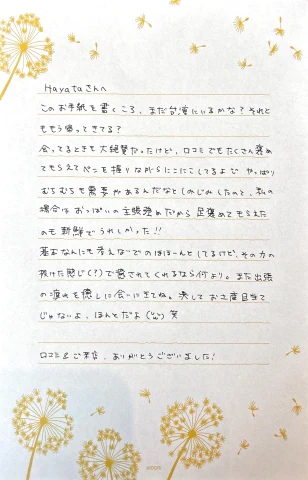 Hayataさんへ
このお手紙を書くころ、まだ台湾にいるかな？それと
ももう帰ってきてる？
会ってるときも大絶賛だったけど、口コミでもたくさん褒め
てもらえてペンを握りながらにこにこしてるよひ やっぱり
むちむちも需要があるんだなとしみじみしたのと、私の
場合はおっぱいの主張強めだから足褒めてもらえた
のも新鮮でうれしかった!!
基本なんにも考えないでのほほーんとしてるけど、その力の
抜けた感じ(?)で愛されてくれるなら何より。また出張
の疲れを癒しに会いにきてね。決してお土産目当て
じゃないよ、ほんとだよ 笑
口コミ&ご来店、ありがとうございました!